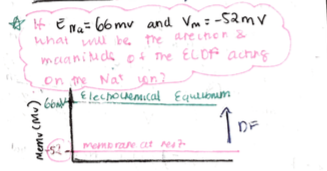 If ENa = 66mv and Vm = -52mV
what will be the direction &
magnitude of the ELDF acting
on the Na+ ion?
66mV Electrochemical Equilibrium
DF
Memv (Mv)
-52 membrane at rest